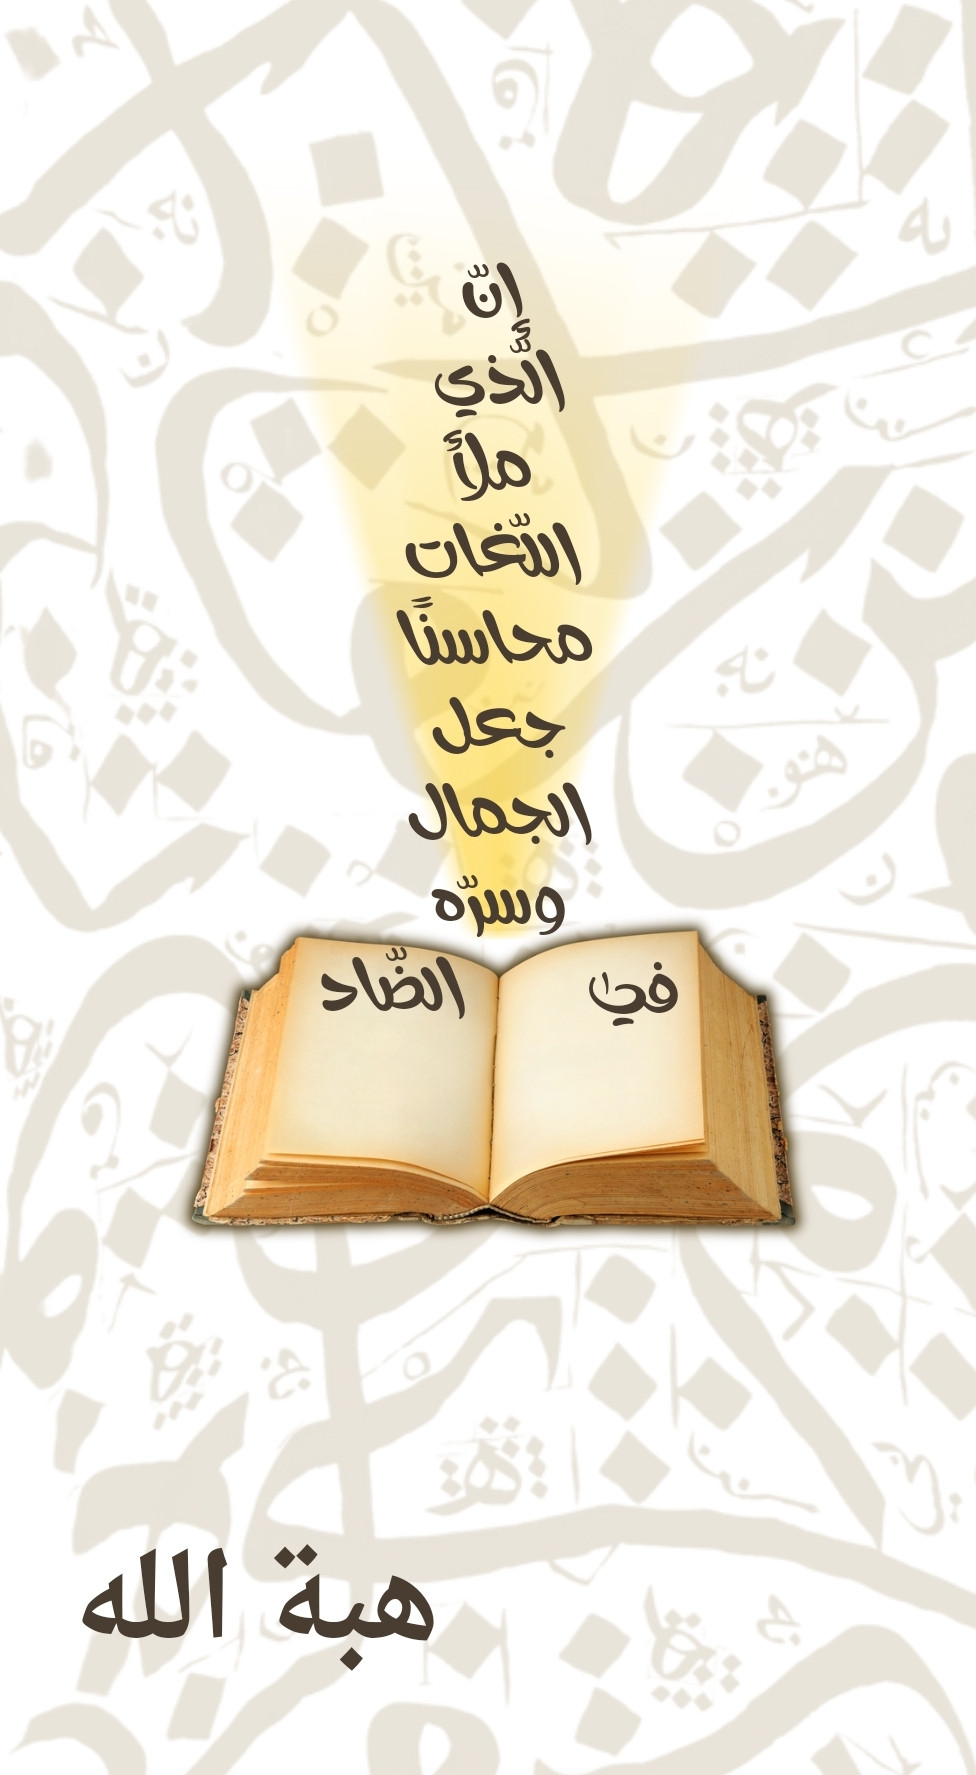 إنَّ
الَّذي
ملأ
اللّغات
محاسنًا
جعل
الجمال
وسرّه
في الضّاد
هبة الله